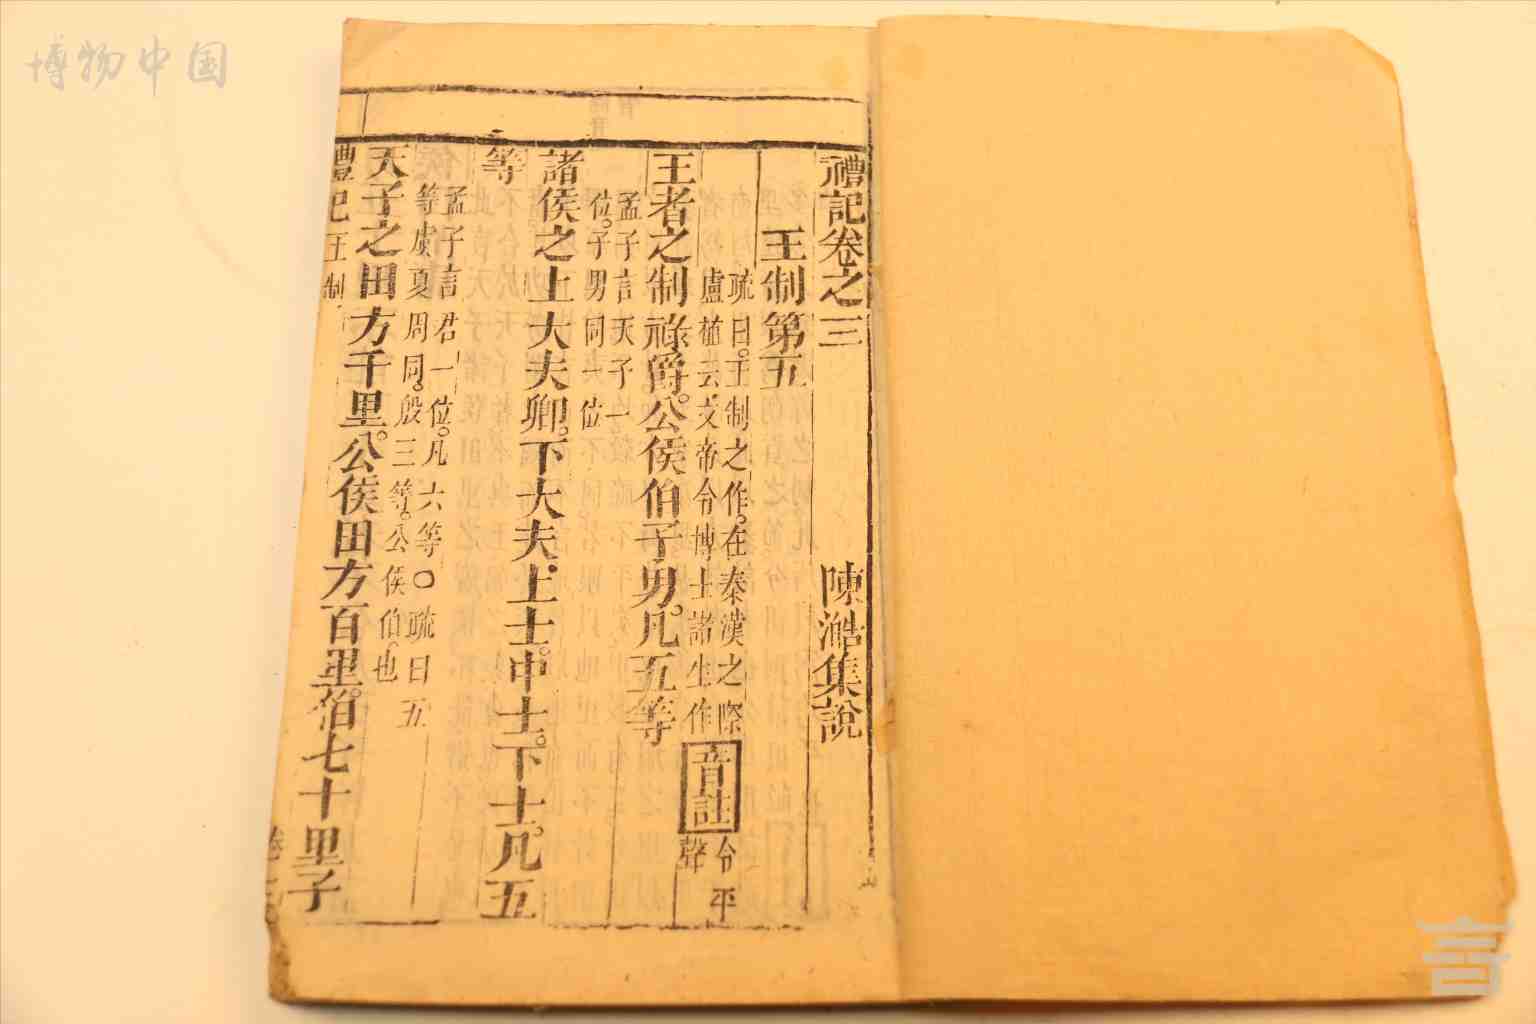 博物中国
禮記卷之三
陳澔集說
王制第五
疏曰。王制之作。在秦漢之際
盧植云。文帝令博士諸生作
音註
令平
聲
王者之制祿爵。公侯伯子男。凡五等
孟子言天子一
位。子男同一位
諸侯之上大夫卿。下大夫。上士。中士。下士。凡五
等
孟子言君一位。凡六等〇疏曰五
等虞夏周同。殷三等。公侯伯。也
天子之田方千里。公侯田方百里。伯七十里子
禮記王制
言